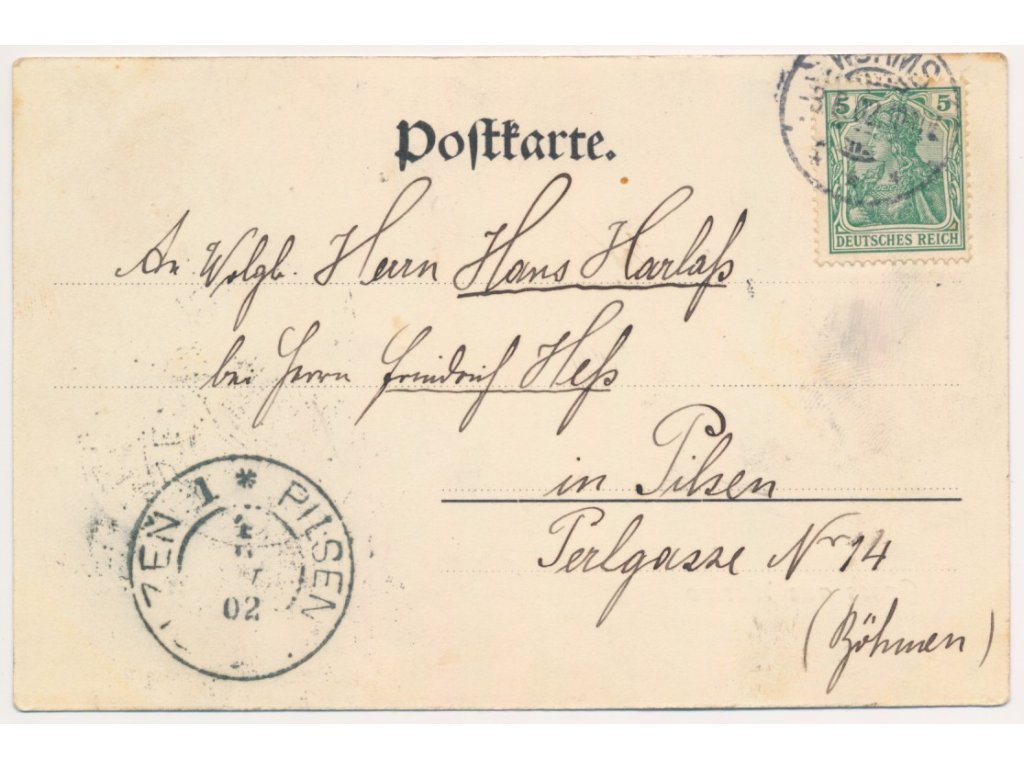 WORMS
Postkarte.
5 5
DEUTSCHES REICH
An Wolgb. Herrn Hans Harlaß
bei Herrn Friedrich Heß
in Pilsen
Perlgasse Nr 14
(Böhmen)
PLZEŇ 1 * PILSEN
02